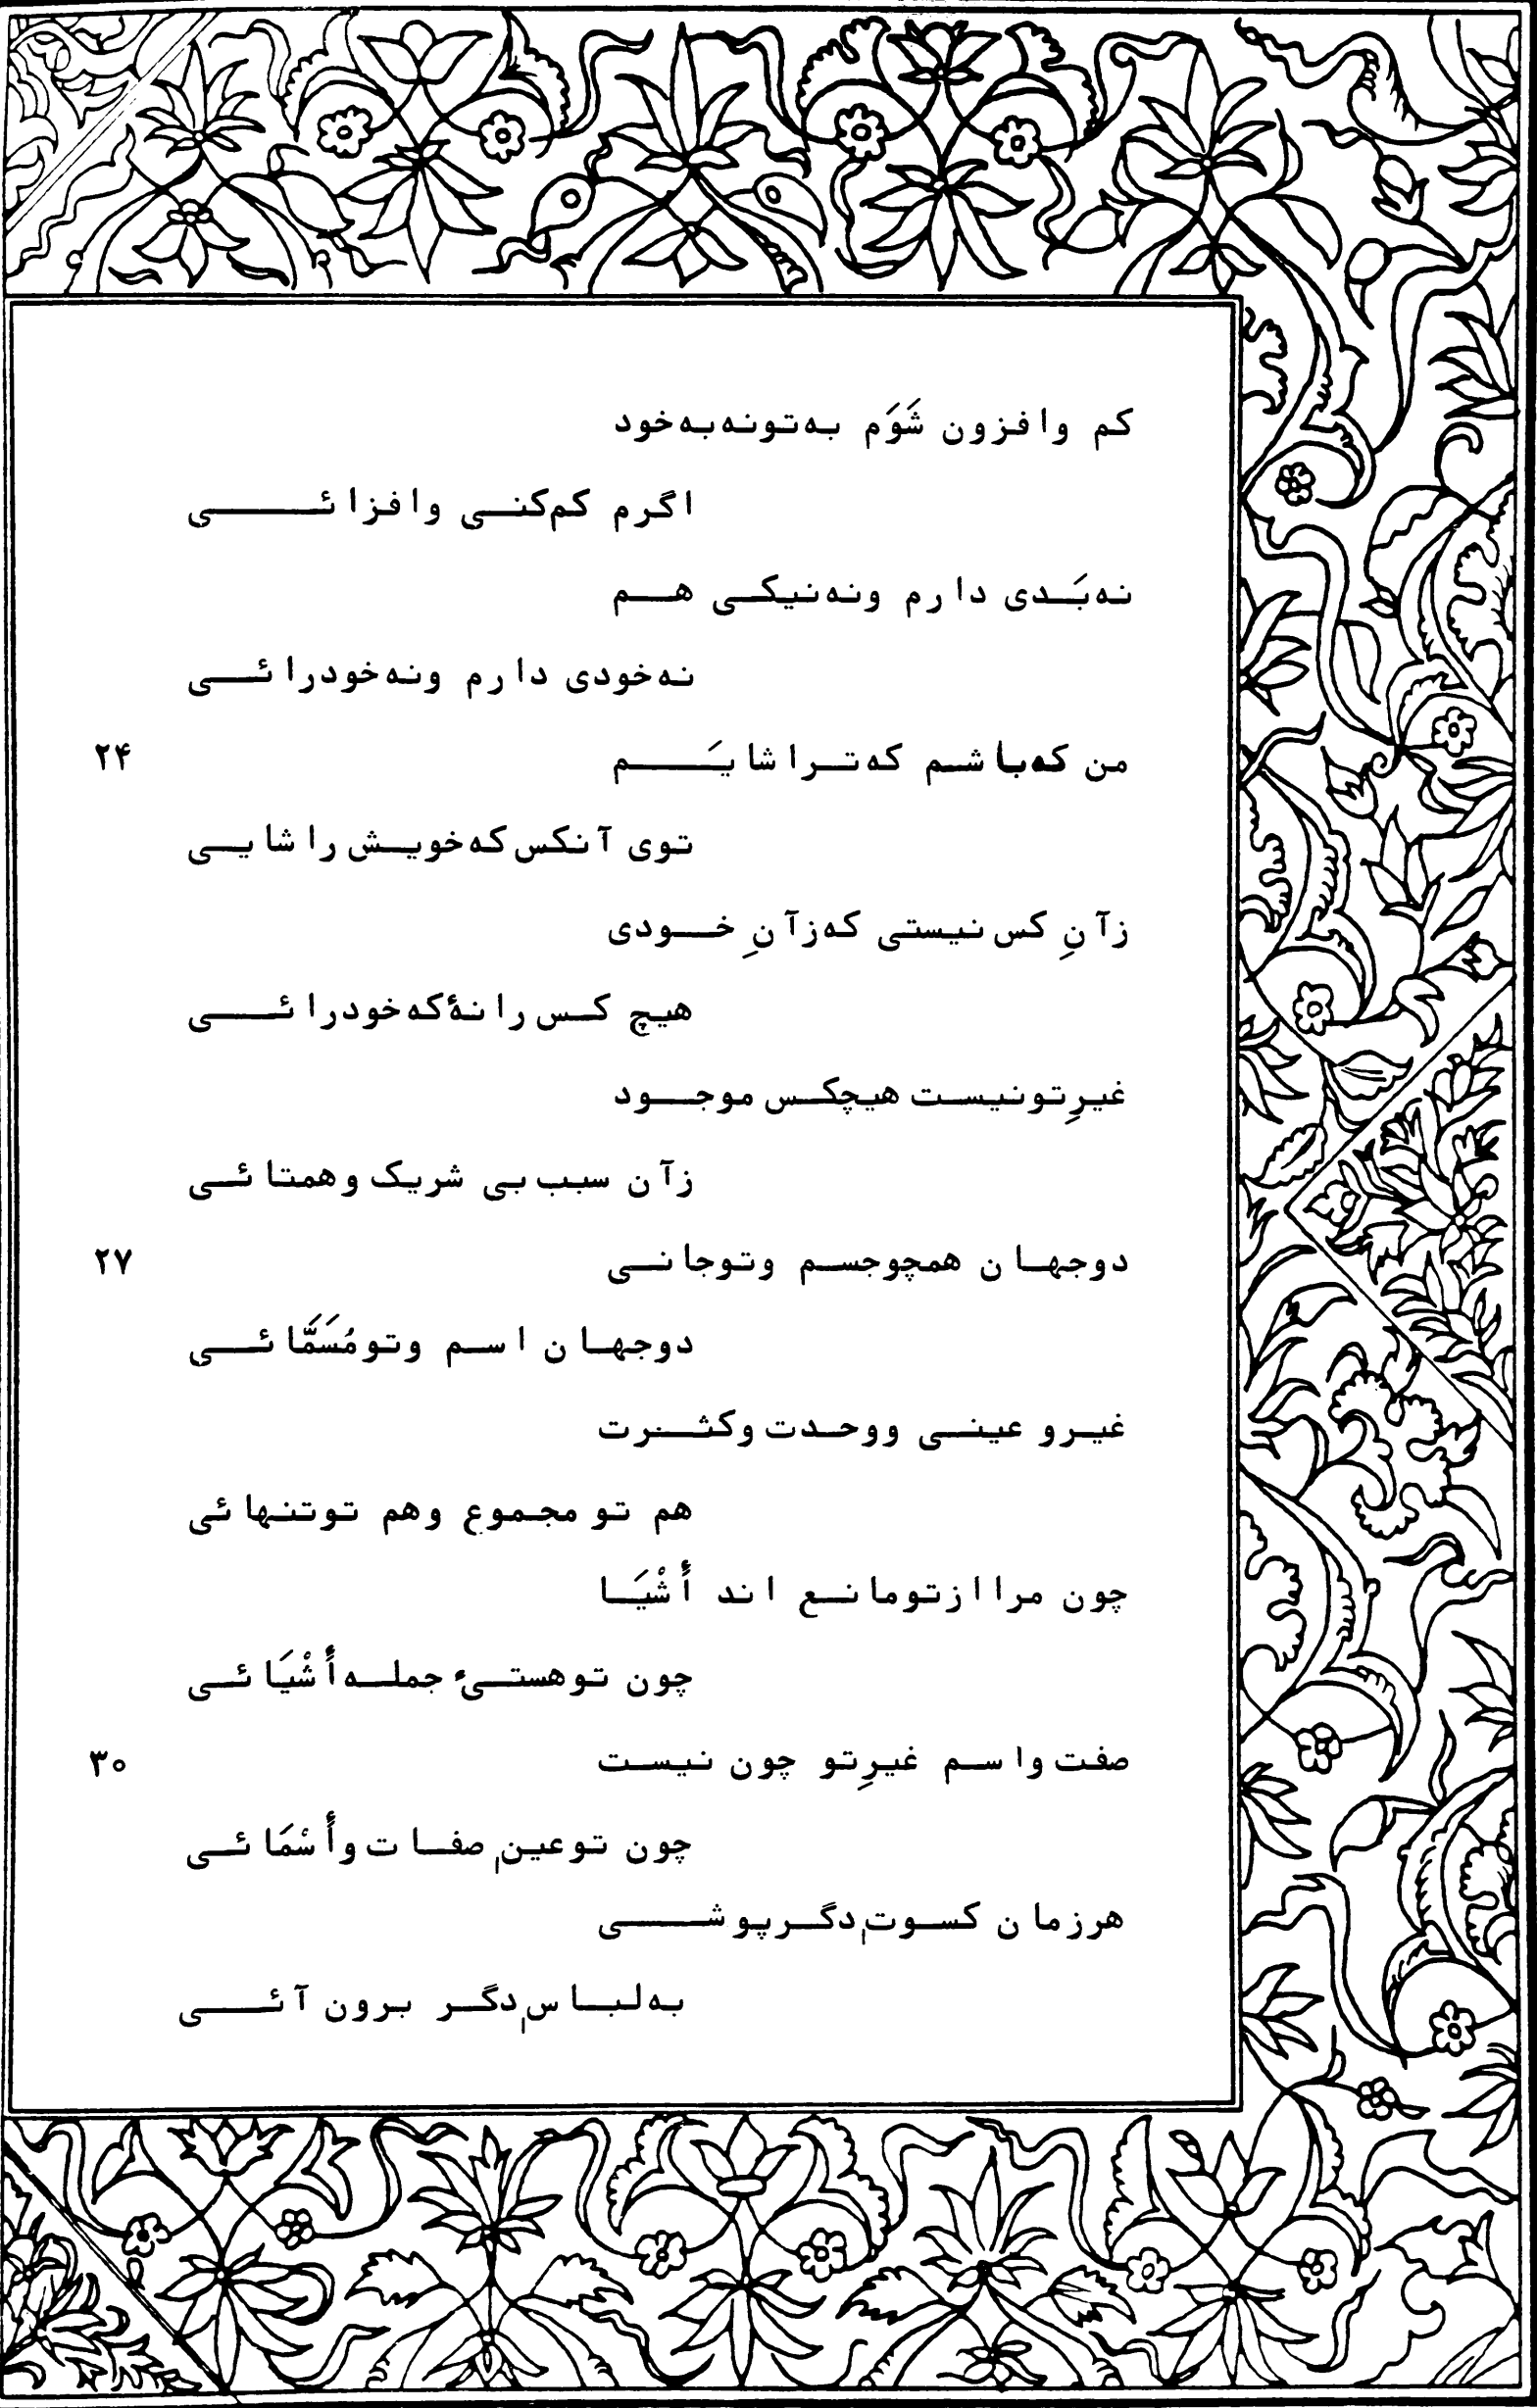 کم وافزون شَوَم به‌تونه‌به‌خود
اگرم کم‌کنی وافزائی
نه‌بَدی دارم ونه‌نیکی هم
نه‌خودی دارم ونه‌خودرائی
من که‌باشم که‌تراشایَم ۲۴
توی آنکس‌که‌خویش‌راشایی
زآنِ کس‌نیستی که‌زآنِ خودی
هیچ کس‌رانهٔ‌که‌خودرائی
غیرِتونیست هیچکس موجود
زآن سبب‌بی شریک وهمتائی
دوجهان همچوجسم وتوجانی ۲۷
دوجهان اسم وتومُسَمَّائی
غیرو عینی ووحدت وکثرت
هم تو مجموع وهم توتنهائی
چون مراازتومانع اند أَشْیَا
چون توهستیء جمله‌أَشْیَائی
صفت واسم غیرِتو چون نیست ۳۰
چون توعینِ صفات وأَسْمَائی
هرزمان کسوتِ دگرپوشی
به‌لباسِ دگر برون آئی